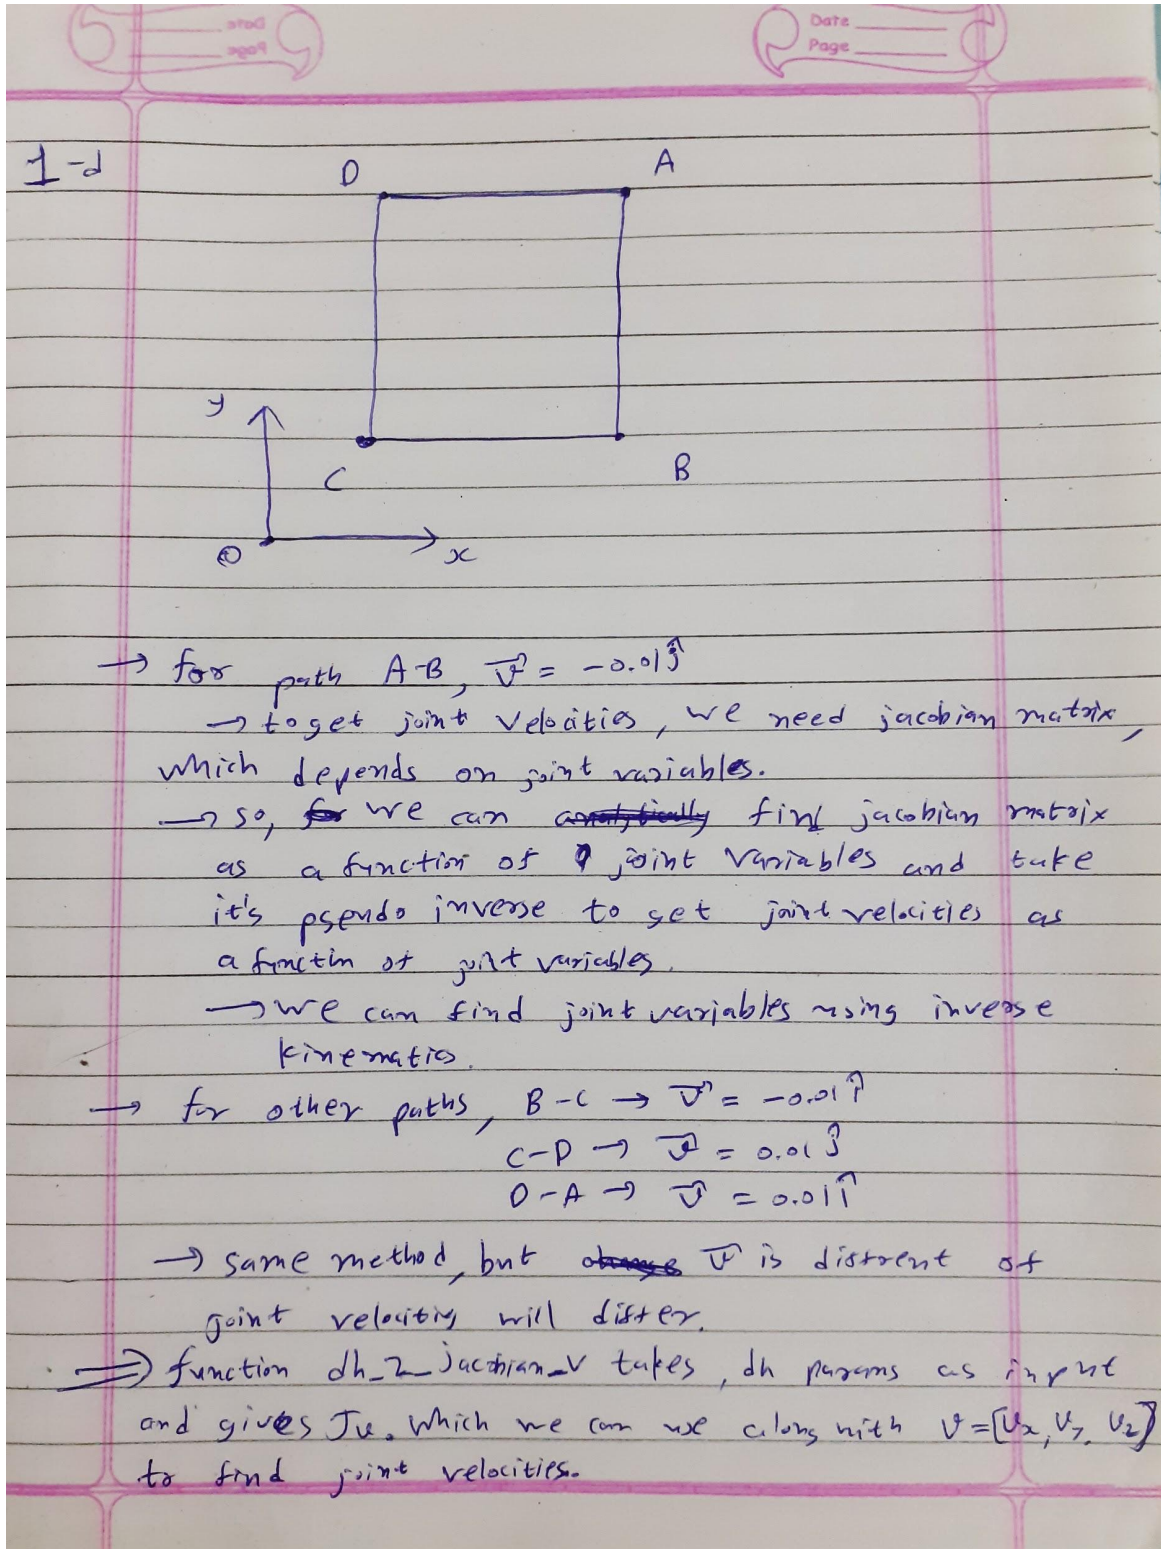 Date
Page
Date
Page
1-d
D A
y
C B
O x
→ for path A-B, v⃗ = -0.01ĵ
→ to get joint velocities, we need jacobian matrix,
which depends on joint variables.
→ so, we can find jacobian matrix
as a function of joint variables and take
it's pseudo inverse to get joint velocities as
a functin of joint variables.
→ we can find joint variables using inverse
kinematics.
→ for other paths, B-C → v⃗ = -0.01î
C-D → v⃗ = 0.01ĵ
D-A → v⃗ = 0.01î
→ same method, but v⃗ is diffrent of
joint velocities will differ.
⇒ function dh_2_jacobian_v takes, dh params as input
and gives Jv. Which we can use along with v=[vx, vy, vz]
to find joint velocities.